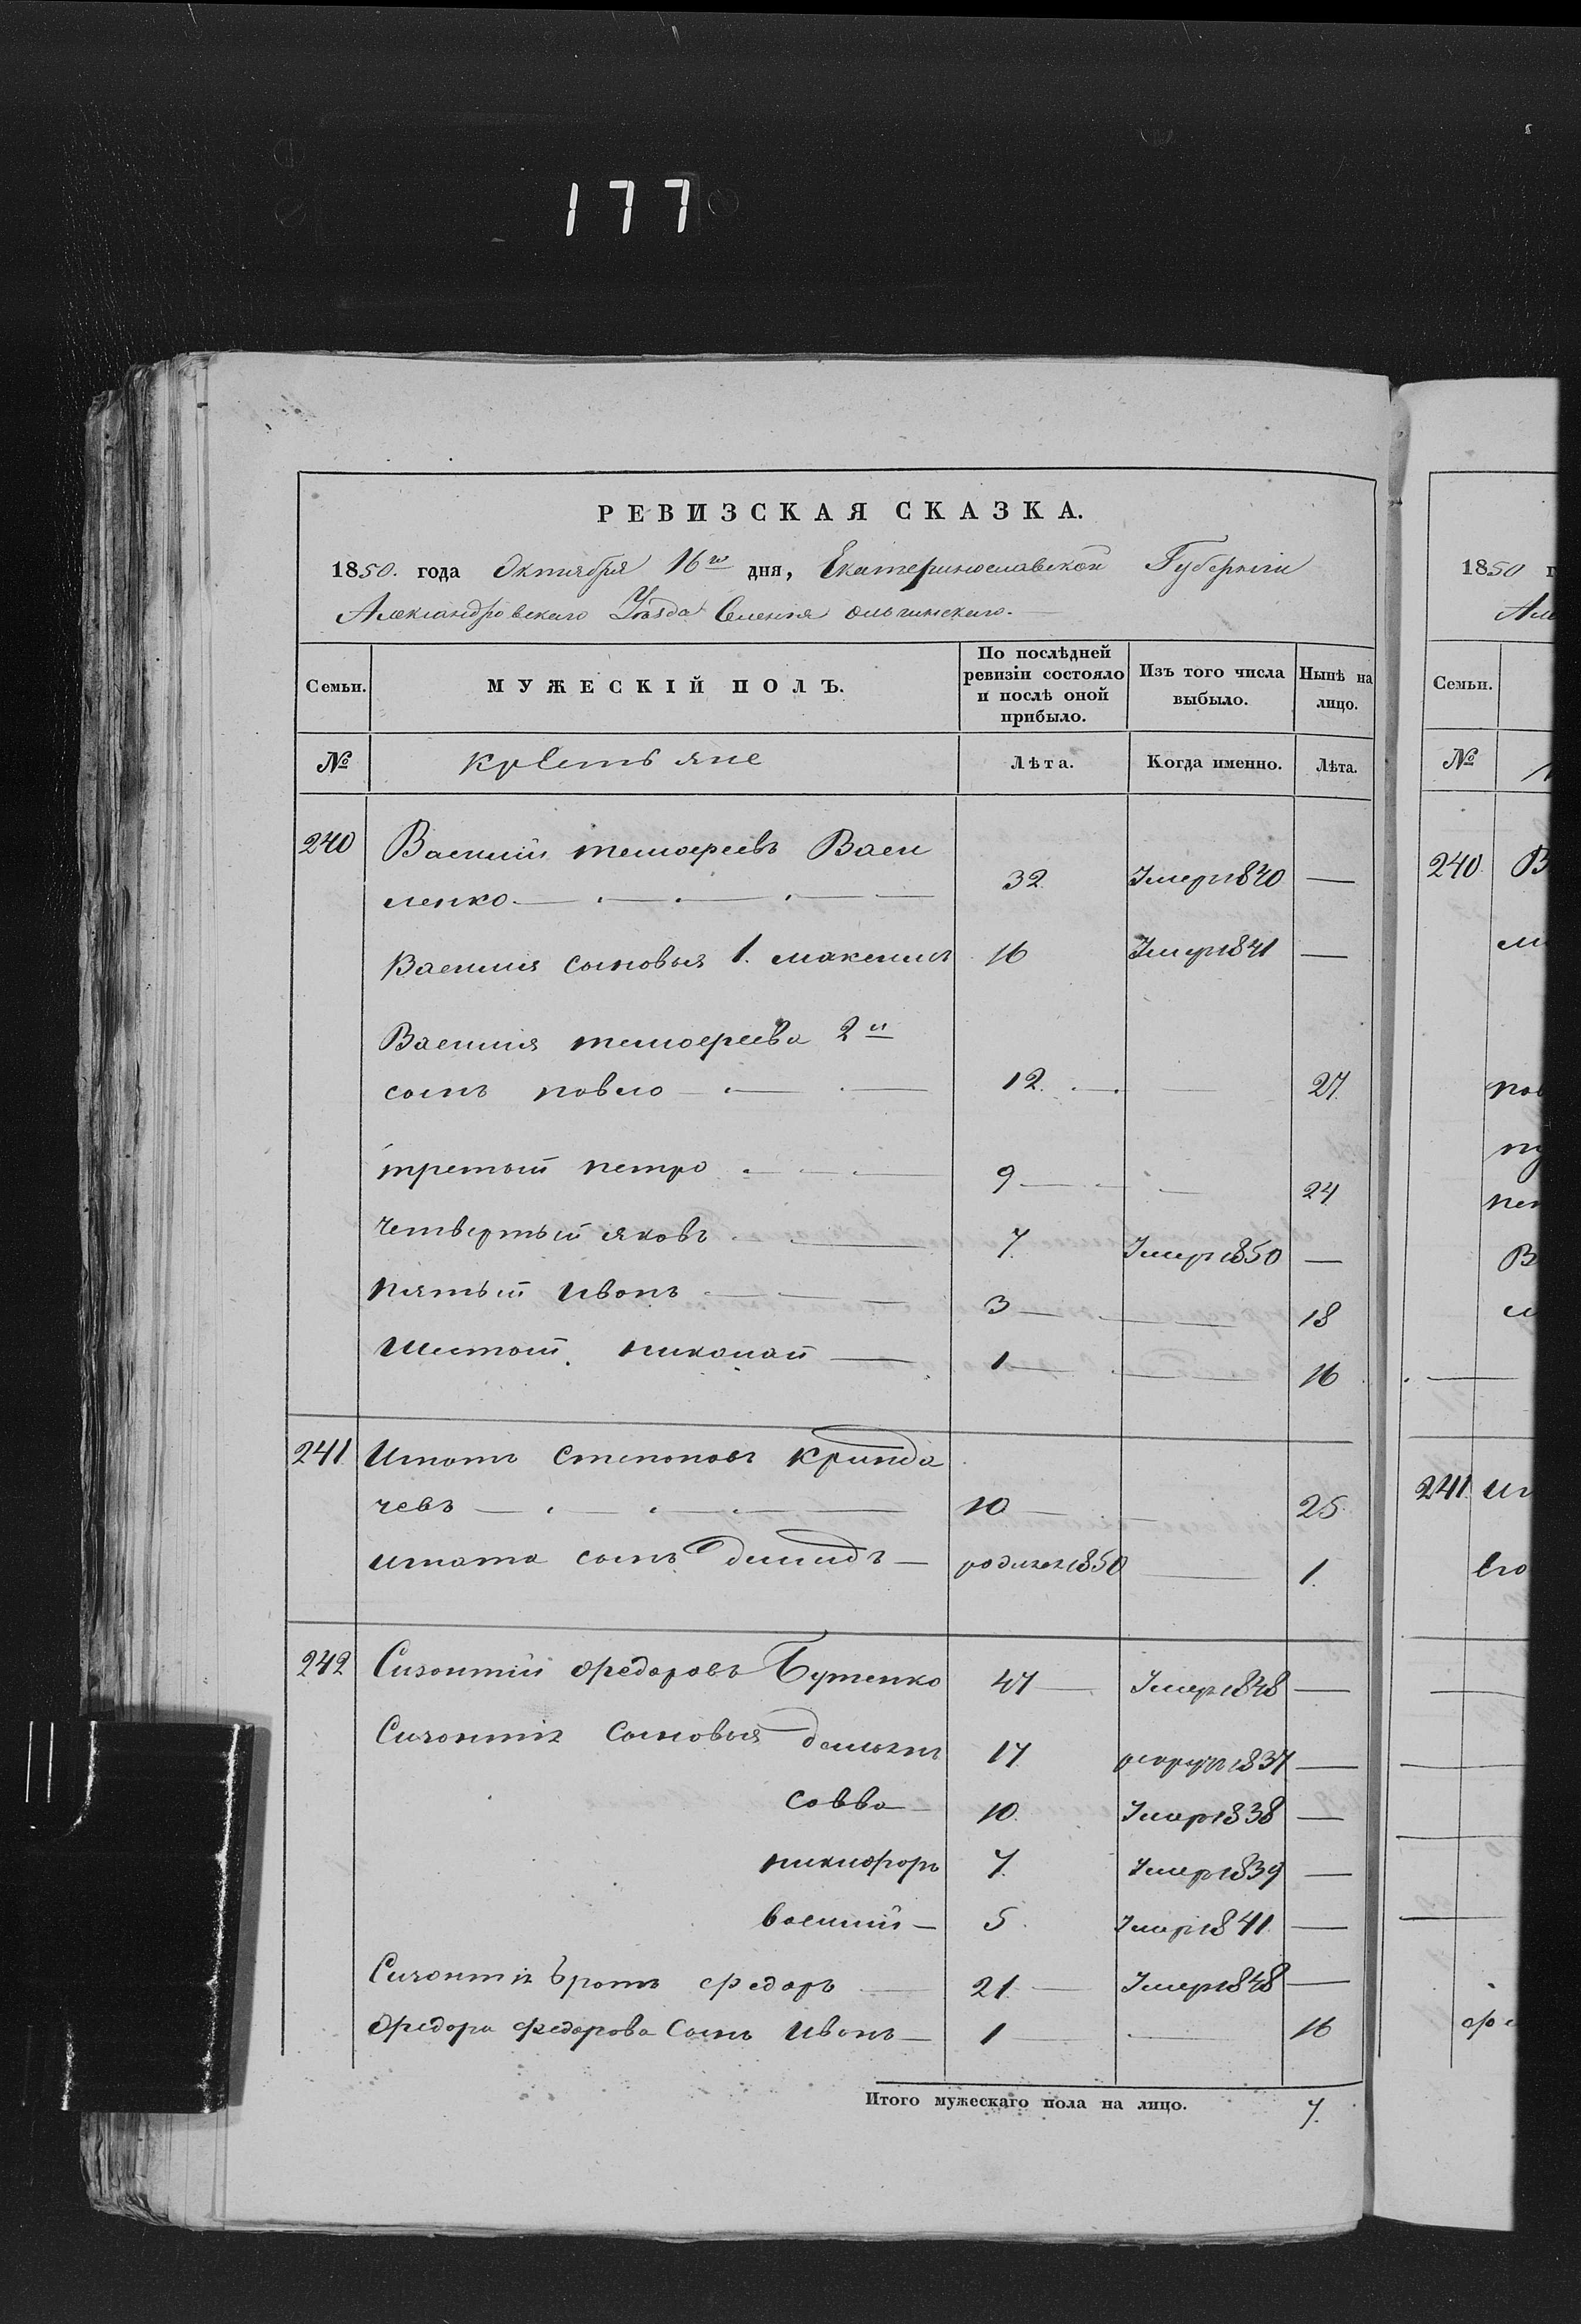 177
РЕВИЗСКАЯ СКАЗКА.
1850. года Октября 16го дня, Екатеринославской Губернiи
Александровскаго Уѣзда Селенiя Ольгинскаго.
Семьи. МУЖЕСКIЙ ПОЛЪ. По послѣдней ревизiи состояло и послѣ оной прибыло. Изъ того числа выбыло. Нынѣ на лицо.
№ крестьяне Лѣта. Когда именно. Лѣта.
240 Василий тимофеевъ Васи
ленко 32 Умеръ 1840 —
Василия сыновья 1. максимъ 16 Умеръ 1841 —
Василия тимофеева 2й
сынъ павло 12. — 27.
третий петро 9 — 24
Четвертый яковъ 7. Умеръ 1850 —
пятый Иванъ 3 — 18
Шестой николай 1 — 16
241 Игнатъ Степановъ Кринда
чевъ 10 — 25
игната сынъ демидъ родился 1850 — 1.
242 Сизонтий Федоровъ Бутенко 47 Умеръ 1848 —
Сизонтия Сыновья 17 1837 —
Савва 10. Умеръ 1838 —
никифоръ 7. Умеръ 1839 —
василий 5. Умеръ 1841 —
Сизонтия братъ федоръ 21 Умеръ 1848 —
Федора Федорова Сынъ Иванъ 1 — 16
Итого мужескаго пола на лицо. 7.
1850 г
Але
Семьи.
№
240 В
241 иг
его